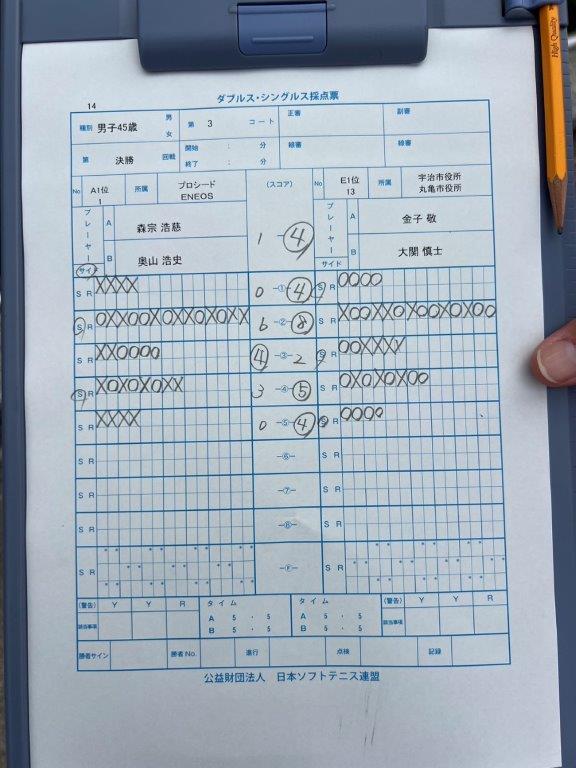 High Quality
ダブルス・シングルス採点票
14
種別 男子45歳 男 女 第 3 コート 正審 副審
第 決勝 回戦 開始 : 分 終了 : 分 線審 線審
No A1位 1 所属 プロシード ENEOS (スコア) No E1位 13 所属 宇治市役所 丸亀市役所
プレーヤー A 森宗 浩慈 1 - 4 プレーヤー A 金子 敬
B 奥山 浩史 B 大関 慎士
サイド サイド
S R XXXX 0 -①- 4 S R OOOO
S R OXXOOXOXXOXOXX 6 -②- 8 S R XOOXXOXOOXOXOO
S R XXOOOO 4 -③- 2 S R OOXXXX
S R XOXOXOXX 3 -④- 5 S R OXOXOXOO
S R XXXX 0 -⑤- 4 S R OOOO
S R -⑥- S R
S R -⑦- S R
S R -⑧- S R
S R -Ⓕ- S R
(警告) Y Y R タイム タイム (警告) Y Y R
該当事項 A 5 ・ 5 A 5 ・ 5 該当事項
B 5 ・ 5 B 5 ・ 5
勝者サイン 勝者No. 進行 点検 記録
公益財団法人 日本ソフトテニス連盟